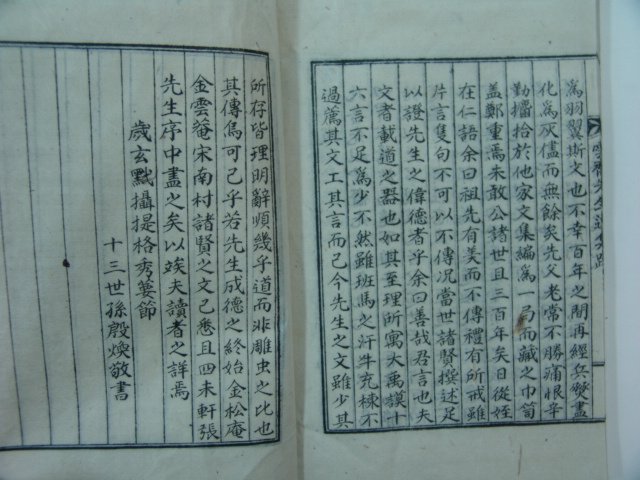 爲羽翼斯文也不幸百年之間再經兵燹盡
化爲灰儘而無餘矣先父老常不勝痛恨辛
勤攟拾於他家文集編爲一局而藏之巾笥
盖鄭重焉未敢公諸世且三百年矣日從姪
在仁語余曰祖先有美而不傳禮有所戒雖
片言隻句不可以不傳况當世諸賢撰述足
以證先生之偉德者乎余曰善哉君言也夫
文者載道之器也如其至理所寓大禹謨十
六言不足爲少不然雖班馬之汗牛充棟不
過薦其文工其言而已今先生之文雖少其
所存皆理明辭順幾乎道而非雕虫之比也
其傳焉可已乎若先生成德之終始金松庵
金雲菴宋南村諸賢之文已悉且四未軒張
先生序中盡之矣以竢夫讀者之詳焉
歲玄黓攝提格秀葽節
十三世孫殷煥敬書